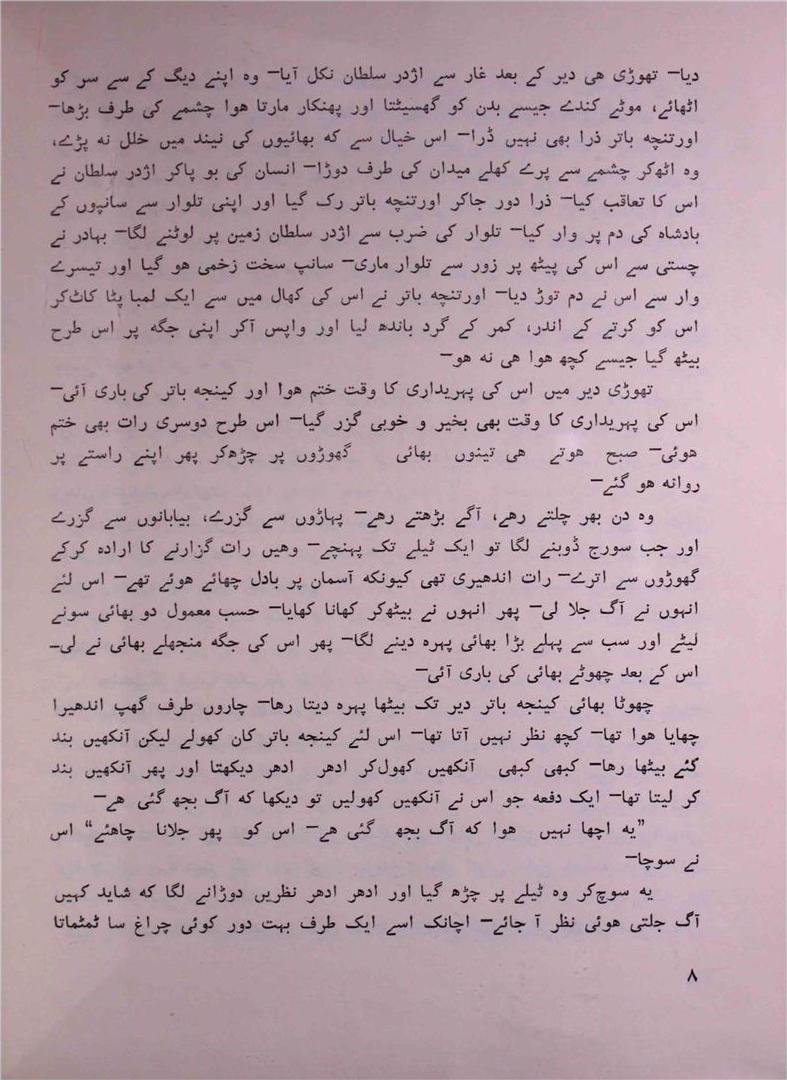 دیا— تھوڑی ھی دیر کے بعد غار سے اژدر سلطان نکل آیا— وہ اپنے دیگ کے سے سر کو
اٹھائے، موٹے کندے جیسے بدن کو گھسیٹتا اور پھنکار مارتا ھوا چشمے کی طرف بڑھا—
اورتنچہ باتر ذرا بھی نہیں ڈرا— اس خیال سے کہ بھائیوں کی نیند میں خلل نہ پڑے،
وہ اٹھکر چشمے سے پرے کھلے میدان کی طرف دوڑا— انسان کی بو پاکر اژدر سلطان نے
اس کا تعاقب کیا— ذرا دور جاکر اورتنچہ باتر رک گیا اور اپنی تلوار سے سانپوں کے
بادشاہ کی دم پر وار کیا— تلوار کی ضرب سے اژدر سلطان زمین پر لوٹنے لگا— بہادر نے
چستی سے اس کی پیٹھ پر زور سے تلوار ماری— سانپ سخت زخمی ھو گیا اور تیسرے
وار سے اس نے دم توڑ دیا— اورتنچہ باتر نے اس کی کھال میں سے ایک لمبا پٹا کاٹ کر
اس کو کرتے کے اندر، کمر کے گرد باندھ لیا اور واپس آکر اپنی جگہ پر اس طرح
بیٹھ گیا جیسے کچھ ھوا ھی نہ ھو—
تھوڑی دیر میں اس کی پہریداری کا وقت ختم ھوا اور کینجہ باتر کی باری آئی—
اس کی پہریداری کا وقت بھی بخیر و خوبی گزر گیا— اس طرح دوسری رات بھی ختم
ھوئی— صبح ھوتے ھی تینوں بھائی گھوڑوں پر چڑھکر پھر اپنے راستے پر
روانہ ھو گئے—
وہ دن بھر چلتے رھے، آگے بڑھتے رھے— پہاڑوں سے گزرے، بیابانوں سے گزرے
اور جب سورج ڈوبنے لگا تو ایک ٹیلے تک پہنچے— وھیں رات گزارنے کا ارادہ کرکے
گھوڑوں سے اترے— رات اندھیری تھی کیونکہ آسمان پر بادل چھائے ھوئے تھے— اس لئے
انہوں نے آگ جلا لی— پھر انہوں نے بیٹھکر کھانا کھایا— حسب معمول دو بھائی سونے
لیٹے اور سب سے پہلے بڑا بھائی پہرہ دینے لگا— پھر اس کی جگہ منجھلے بھائی نے لی—
اس کے بعد چھوٹے بھائی کی باری آئی—
چھوٹا بھائی کینجہ باتر دیر تک بیٹھا پہرہ دیتا رھا— چاروں طرف گھپ اندھیرا
چھایا ھوا تھا— کچھ نظر نہیں آتا تھا— اس لئے کینجہ باتر کان کھولے لیکن آنکھیں بند
کئے بیٹھا رھا— کبھی کبھی آنکھیں کھول کر ادھر ادھر دیکھتا اور پھر آنکھیں بند
کر لیتا تھا— ایک دفعہ جو اس نے آنکھیں کھولیں تو دیکھا کہ آگ بجھ گئی ھے—
”یہ اچھا نہیں ھوا کہ آگ بجھ گئی ھے— اس کو پھر جلانا چاھئے“ اس
نے سوچا—
یہ سوچ کر وہ ٹیلے پر چڑھ گیا اور ادھر ادھر نظریں دوڑانے لگا کہ شاید کہیں
آگ جلتی ھوئی نظر آ جائے— اچانک اسے ایک طرف بہت دور کوئی چراغ سا ٹمٹماتا
۸